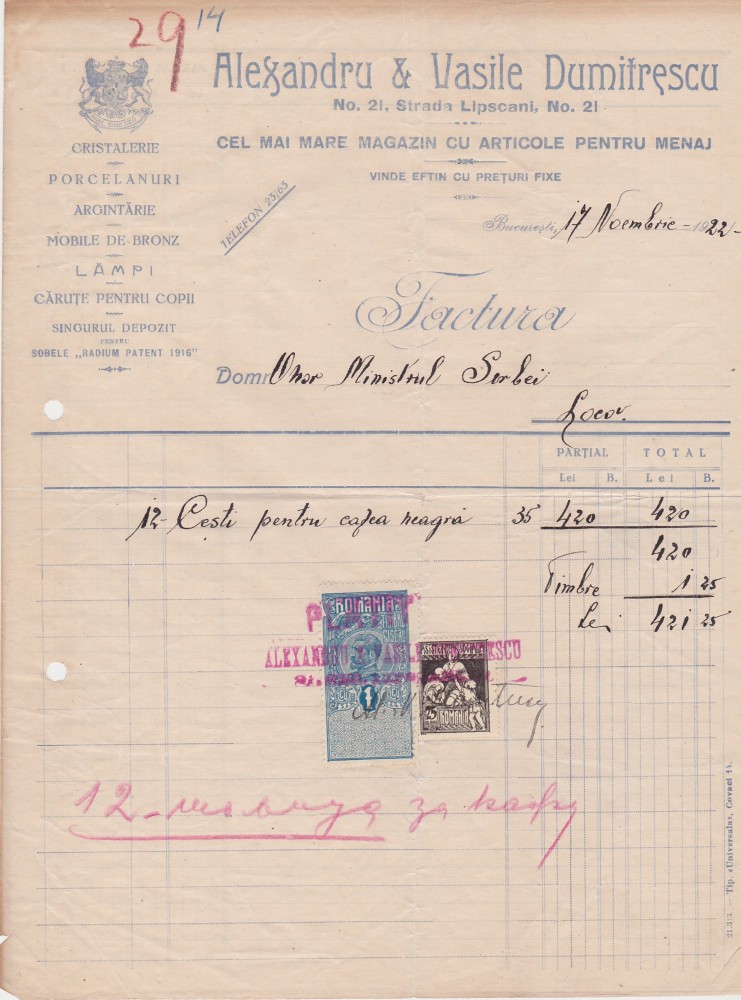 29 14
Alexandru & Vasile Dumitrescu
No. 21, Strada Lipscani, No. 21
CEL MAI MARE MAGAZIN CU ARTICOLE PENTRU MENAJ
VINDE EFTIN CU PREȚURI FIXE
CRISTALERIE
PORCELANURI
ARGINTĂRIE
MOBILE DE BRONZ
LĂMPI
CĂRUȚE PENTRU COPII
SINGURUL DEPOZIT
PENTRU
SOBELE „RADIUM PATENT 1916"
TELEFON 25/65
București, 17 Noembrie - 1922-
Factura
Domn Onor Ministrul Serbei
Loco.
PARȚIAL TOTAL
Lei B. Lei B.
12- Cești pentru cafea neagră 35 420 420
420
Timbre 1 25
Lei 421 25
ROMANIA
PLATIT
ALEXANDRU & VASILE DUMITRESCU
1
25 ROMANIA
12 - шољица за кафу
21.313. — Tip. «Universala», Covaci 14.